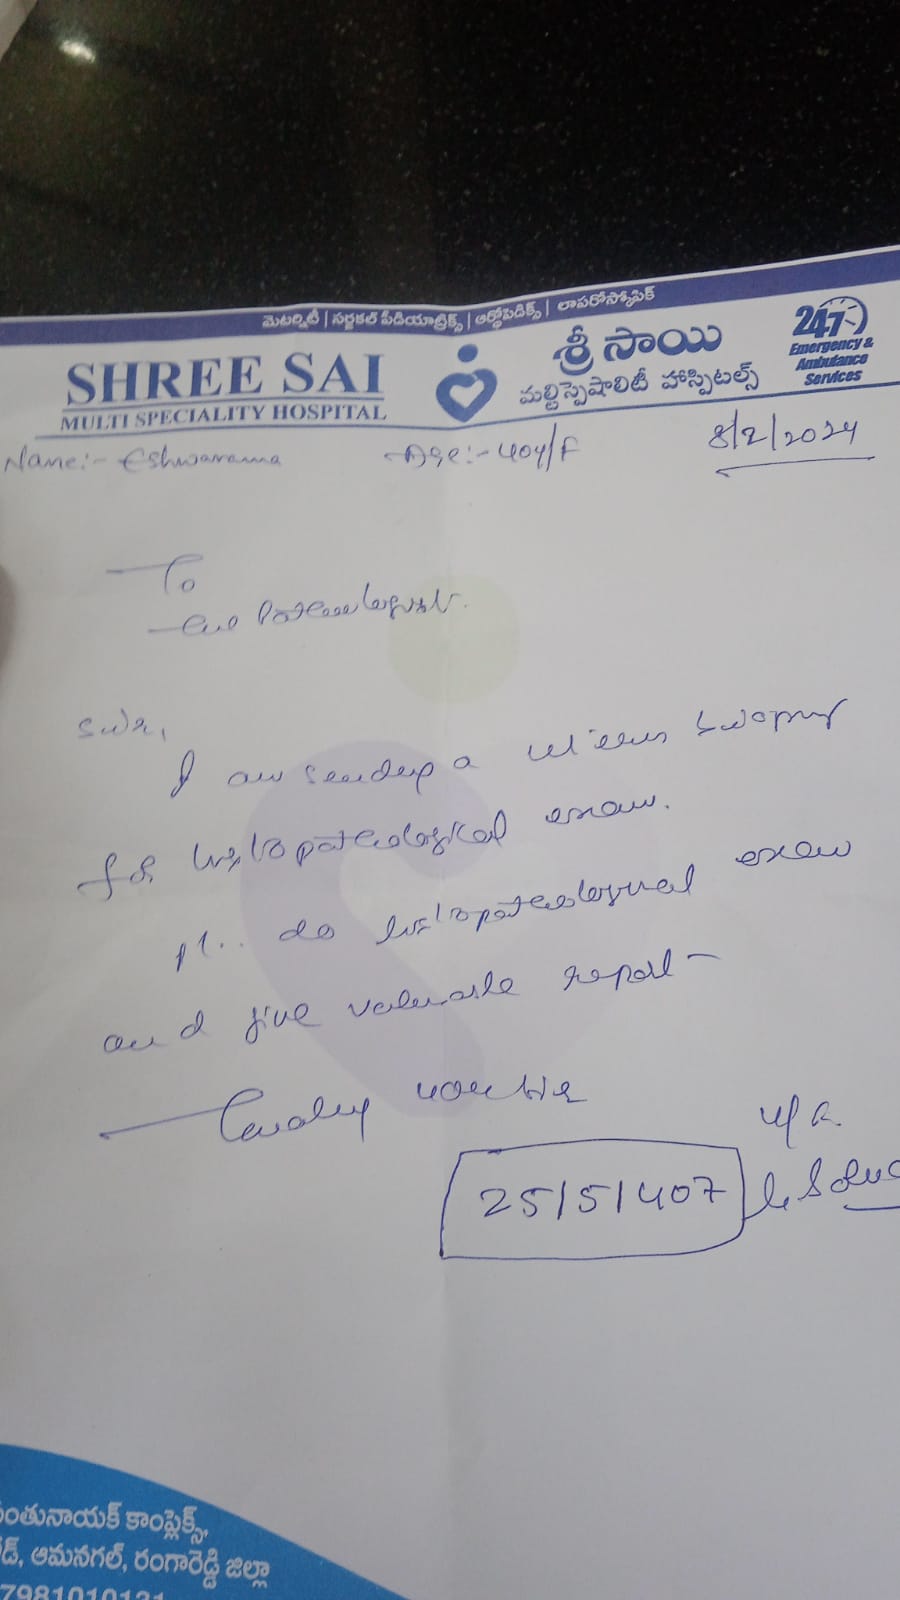 మెటర్నిటీ | సర్జికల్ పీడియాట్రిక్స్ | ఆర్థోపెడిక్స్ | లాపరోస్కోపిక్
SHREE SAI
MULTI SPECIALITY HOSPITAL
శ్రీ సాయి
మల్టిస్పెషాలిటీ హాస్పిటల్స్
24x7
Emergency &
Ambulance
Services
Name:- Eshwarama Age:- 40y/F 8/2/2024
To
The Pathologist.
Sir,
I am sending a uterus
for histopathological exam.
Pl.. do histopathological exam
and give valuable report
Thanking
25/5/407
కాంప్లెక్స్,
ఆమనగల్, రంగారెడ్డి జిల్లా